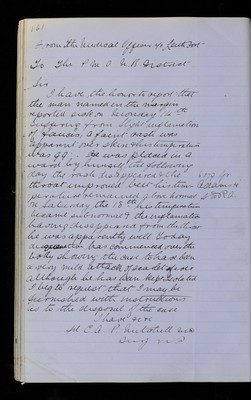 161
From The Medical Officer i/c Leith Fort
To The P M O N.B. District
Sir
I have the honor to report that
the man named in the margin
reported sick on Monday
suffering from slight inflammation
of fauces. A faint rash was
apparent over skin & his temperature
was 99°. He was placed in a
ward by himself the following
day the rash disappeared & the
throat improved but his
temperature remained above normal
On Saturday the 18th his temperature
became subnormal & the inflammation
having disappeared from the throat
he was apparently well. Today
desquamation has commenced over the
body showing the case to have been
a very mild attack of scarlet fever
although he has been kept isolated
I beg to request that I may be
furnished with instructions
as to the disposal of the case
I have &c
Sd C. A. P. Mitchell MB
Surg
Gr